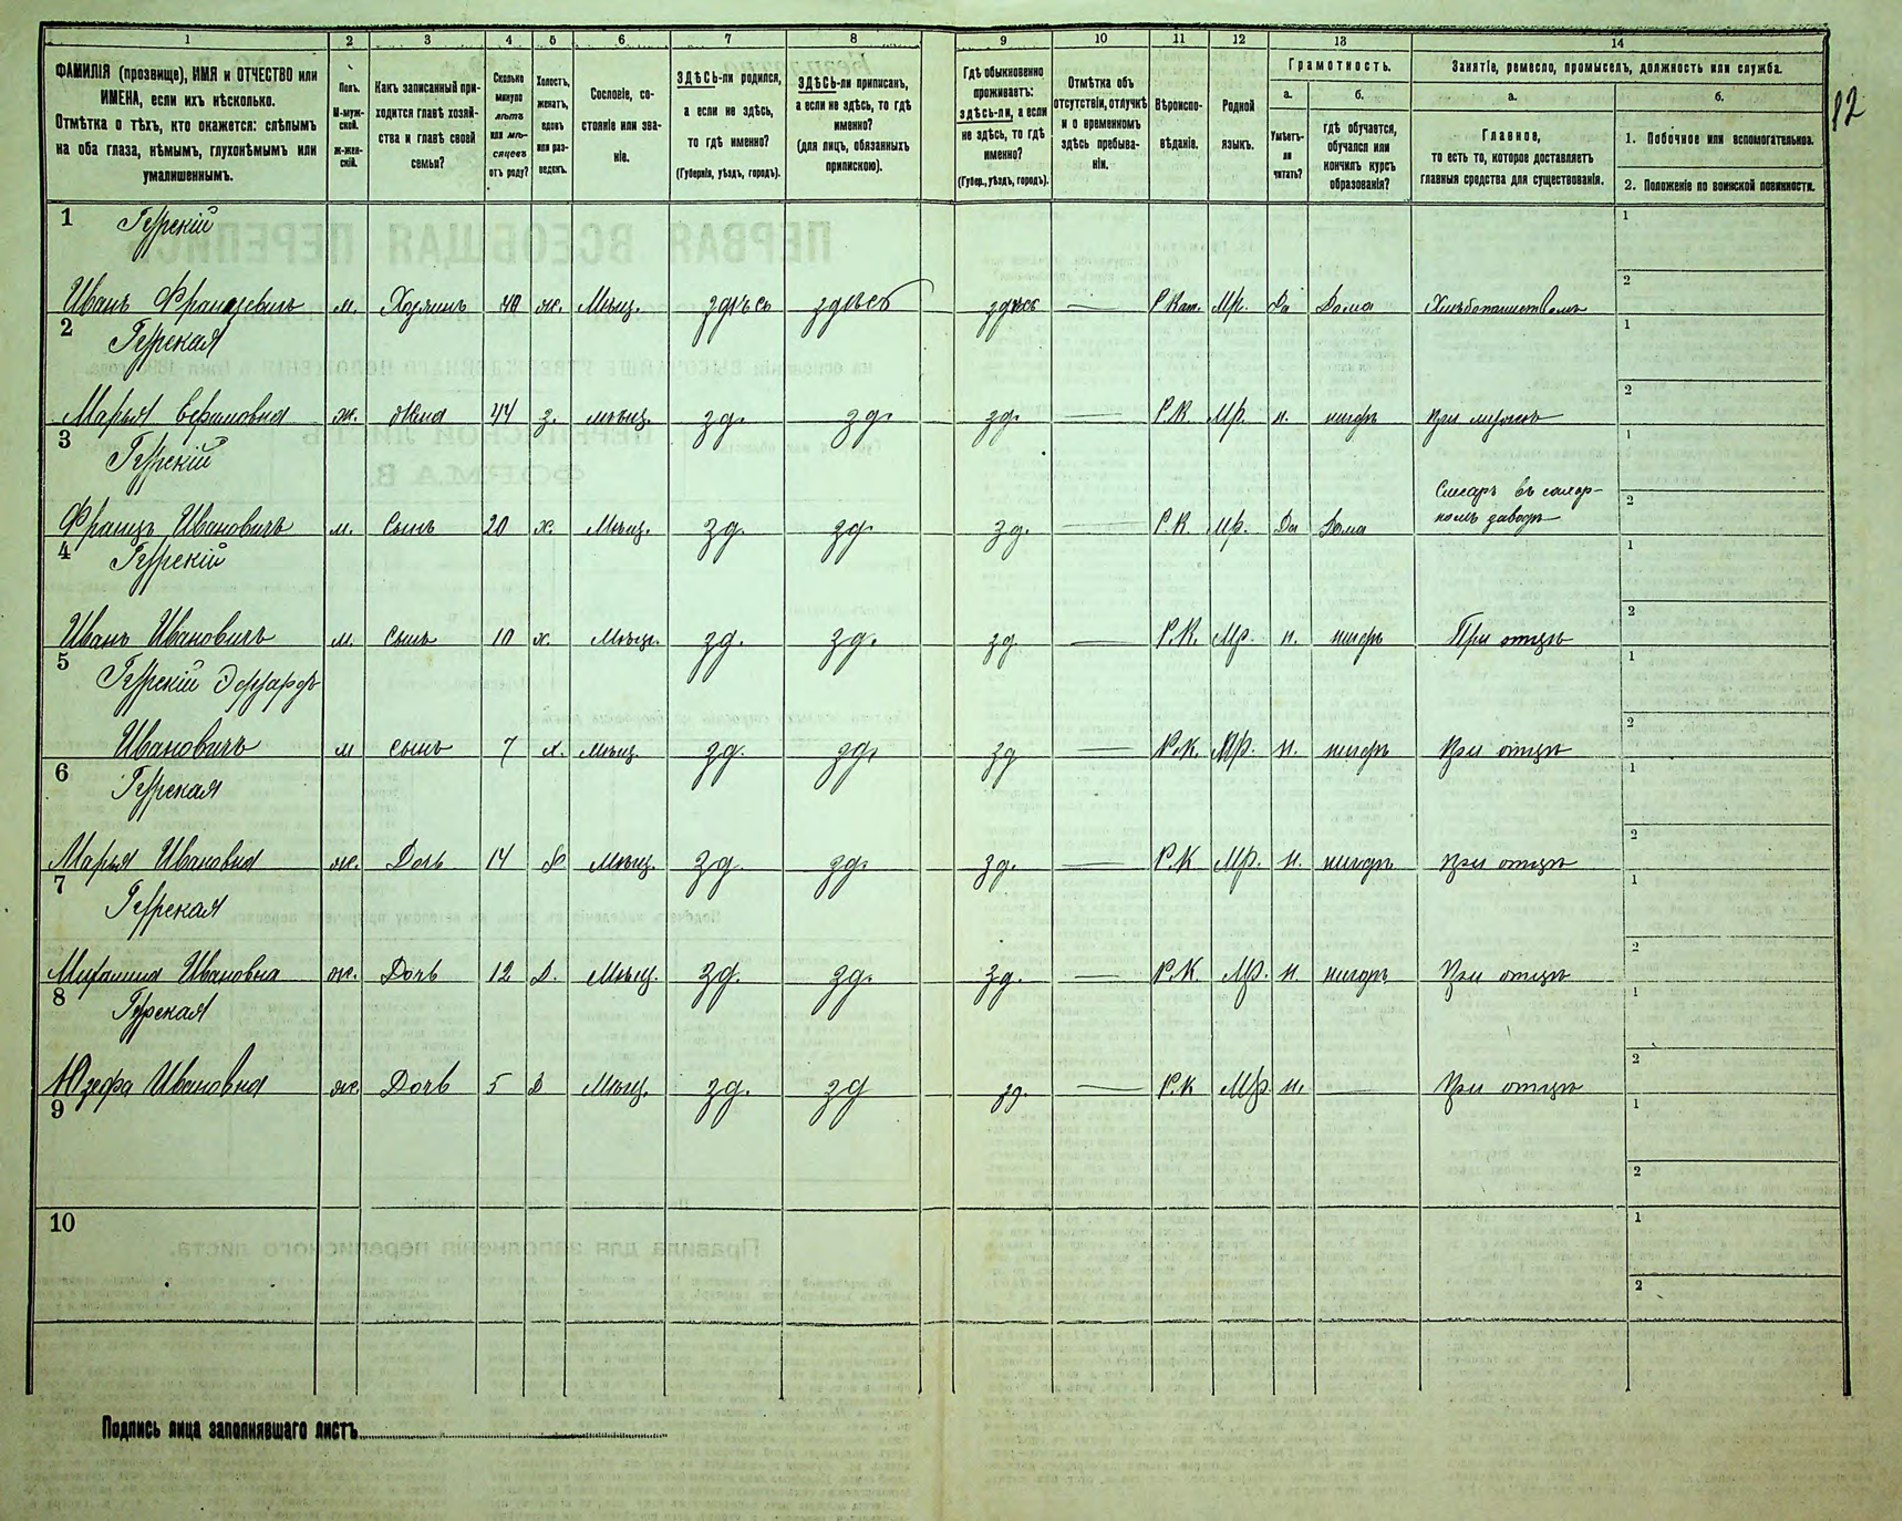 1 2 3 4 5 6 7 8 9 10 11 12 13 14
ФАМИЛІЯ (прозвище), ИМЯ и ОТЧЕСТВО или
ИМЕНА, если ихъ нѣсколько.
Отмѣтка о тѣхъ, кто окажется: слѣпымъ
на оба глаза, нѣмымъ, глухонѣмымъ или
умалишеннымъ.
Полъ.
М-муж-
ской.
Ж-жен-
скій.
Какъ записанный при-
ходится главѣ хозяй-
ства и главѣ своей
семьи?
Сколько
минуло
лѣтъ
или мѣ-
сяцевъ
отъ роду?
Холостъ,
женатъ,
вдовъ
или раз-
веденъ.
Сословіе, со-
стояніе или зва-
ніе.
ЗДѢСЬ-ли родился,
а если не здѣсь,
то гдѣ именно?
(Губернія, уѣздъ, городъ).
ЗДѢСЬ-ли приписанъ,
а если не здѣсь, то гдѣ
именно?
(для лицъ, обязанныхъ
припискою).
Гдѣ обыкновенно
проживаетъ:
здѣсь-ли, а если
не здѣсь, то гдѣ
именно?
(Губер., уѣздъ, городъ).
Отмѣтка объ
отсутствіи, отлучкѣ
и о временномъ
здѣсь пребыва-
ніи.
Вѣроиспо-
вѣданіе.
Родной
языкъ.
Грамотность.
а.
Умѣетъ-
ли
читать?
б.
гдѣ обучается,
обучался или
кончилъ курсъ
образованія?
Занятіе, ремесло, промыселъ, должность или служба.
а.
Главное,
то есть то, которое доставляетъ
главныя средства для существованія.
б.
1. Побочное или вспомогательное.
2. Положеніе по воинской повинности.
12
1
Иванъ Францевичъ м. Хозяинъ ж. Мѣщ. здѣсь здѣсь здѣсь — Р. Кат. Да Дома Хлѣбопашествомъ
1
2
2
Марья Ефимовна ж. Жена 44 з. мѣщ. зд. зд. зд. — Р.К. н. нигдѣ При мужѣ
1
2
3
Францъ Ивановичъ м. Сынъ 20 х. Мѣщ. зд. зд. зд. — Р.К. Да Дома
заводѣ
1
2
4
Иванъ Ивановичъ м. Сынъ 10 х. Мѣщ. зд. зд. зд — Р.К. н. нигдѣ При отцѣ
1
2
5
Ивановичъ м сынъ 7 х. мѣщ. зд. зд. зд — Р.К. н. нигдѣ При отцѣ
1
2
6
Марья Ивановна ж. Дочь 14 Мѣщ. зд. зд. зд. — Р.К н. нигдѣ При отцѣ
1
2
7
Михалина Ивановна ж. Дочь 12 Д. Мѣщ. зд. зд. зд. — Р.К. н нигдѣ При отцѣ
1
2
8
Юзефа Ивановна ж Дочь 5 Д Мѣщ. зд. зд зд. — Р.К н. — При отцѣ
1
2
9
1
2
10
1
2
Подпись лица заполнявшаго листъ